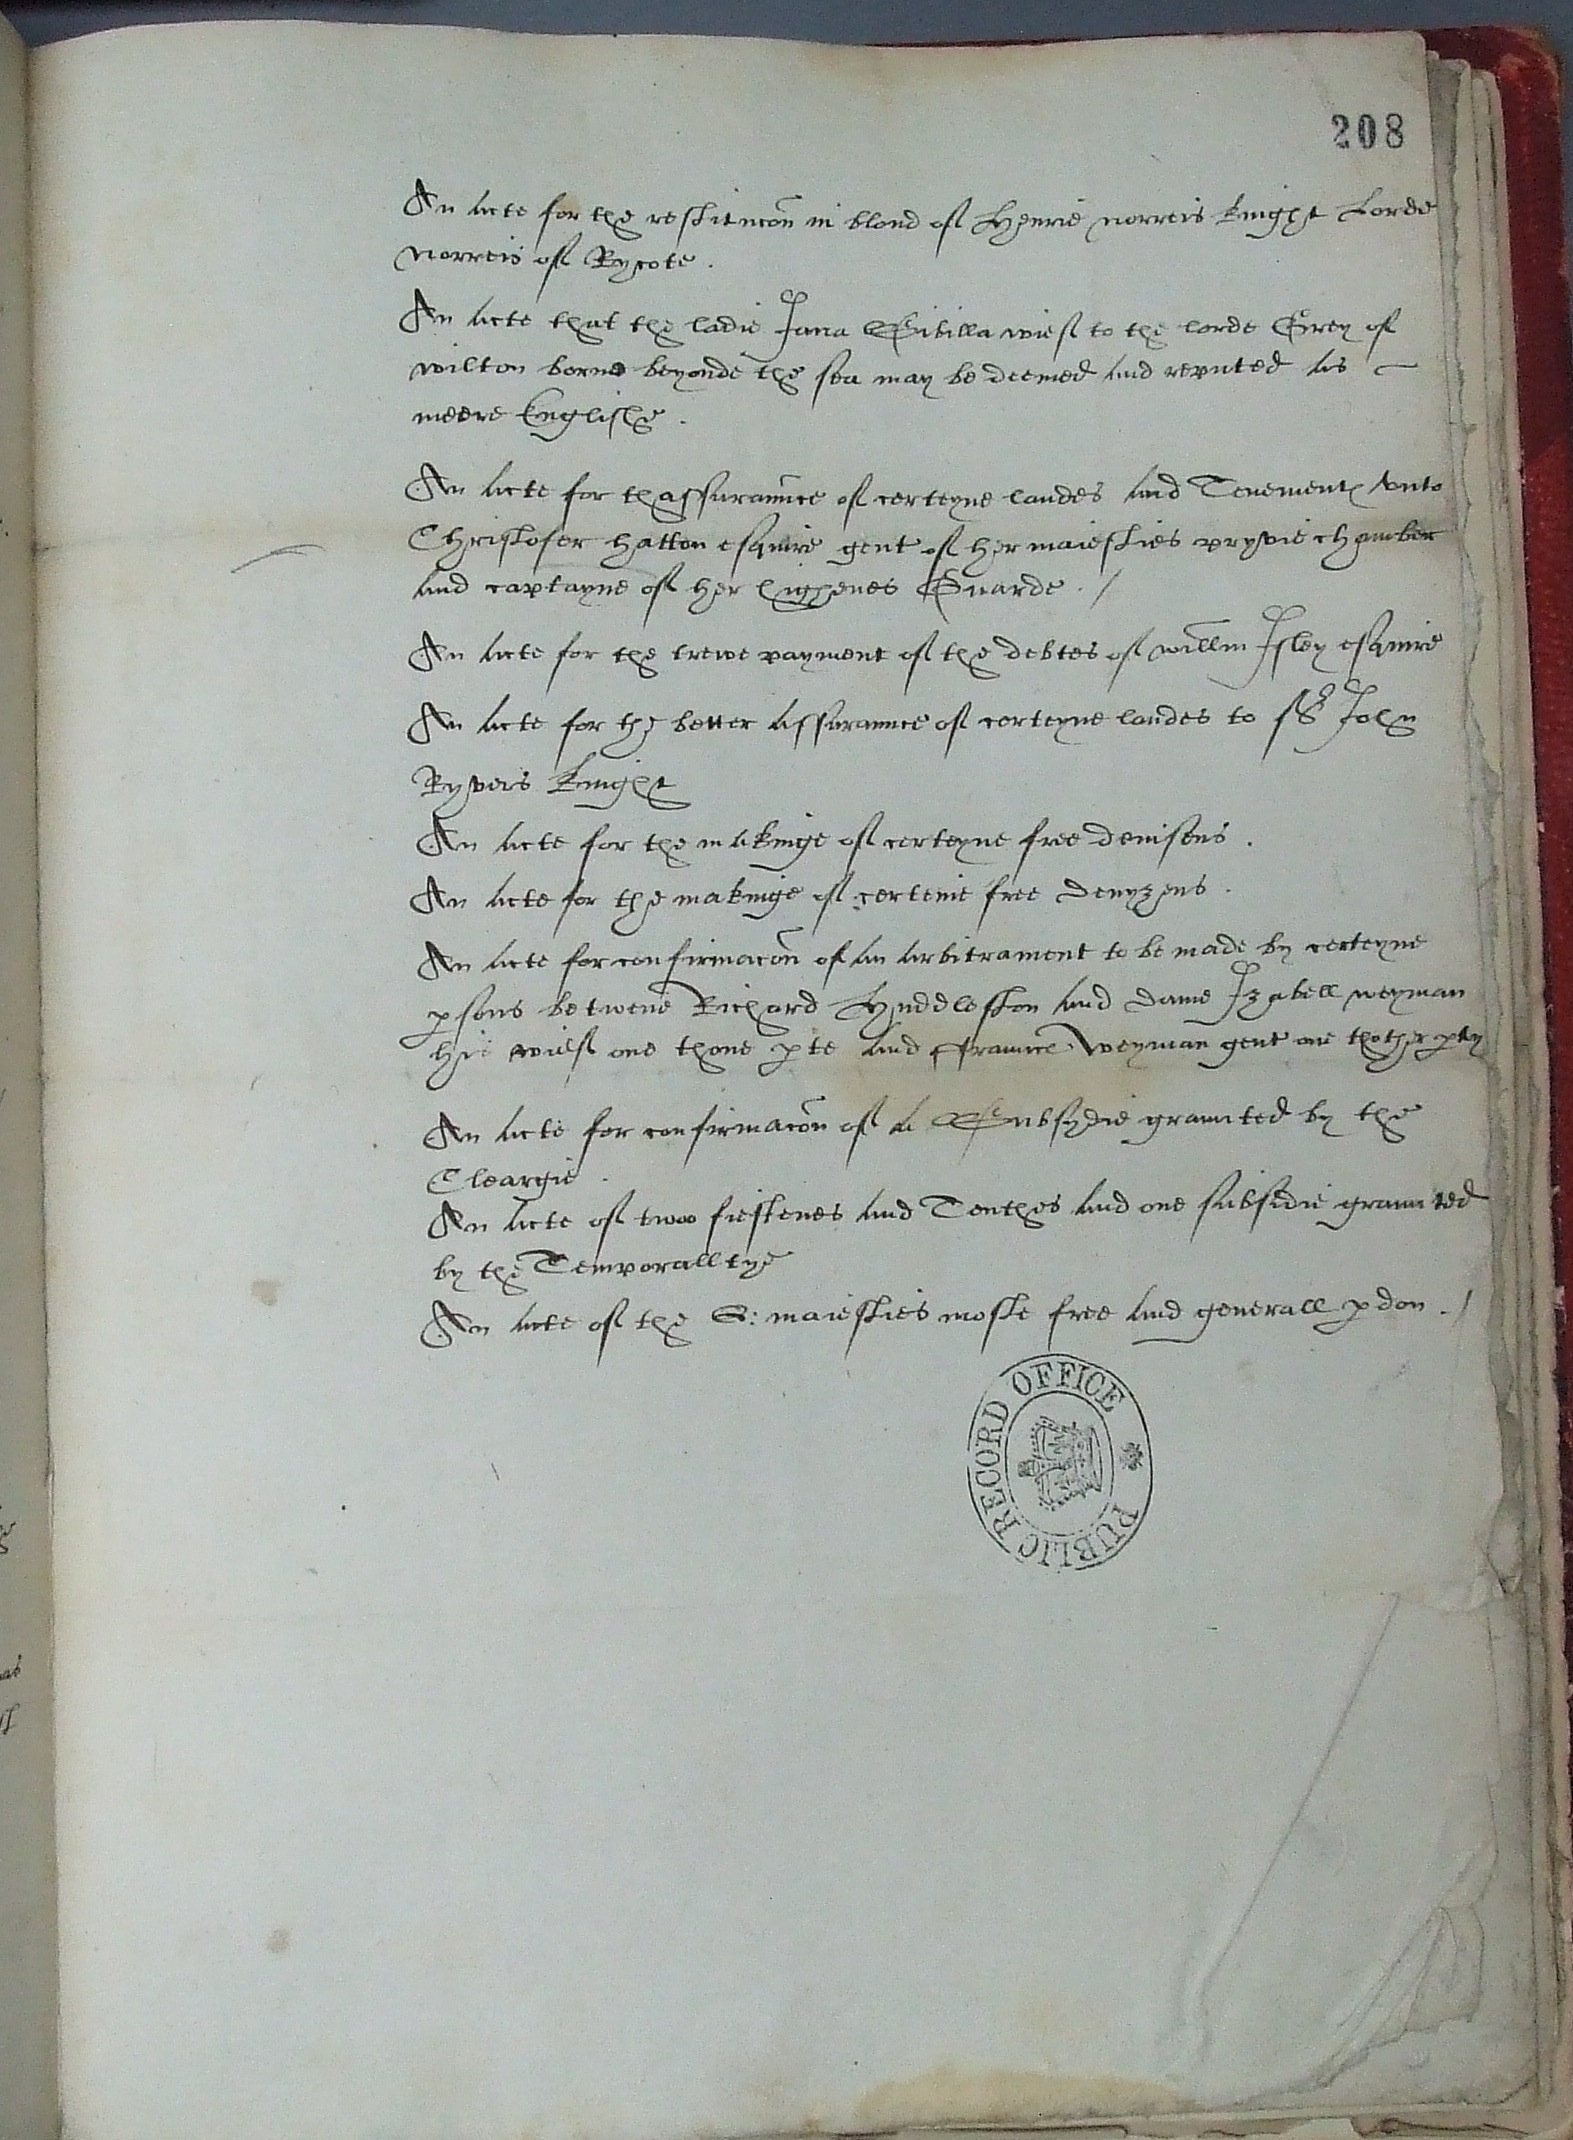 208
An Acte for the restitucōn in bloud of Henrie Norreis knight Lorde
Norreis of Rycote.
An Acte that the ladie Jana Sibilla wief to the lorde Grey of
wilton borne beyonde the sea may be deemed and reputed as
meere Englishe.
An Acte for thassuraunce of certeyne landes and Tenementꝭ vnto
Christofer Hatton esquire gent of her maiesties pryvie chamber
and captayne of her highenes Guarde. /
An Acte for the trewe payment of the debtes of willm̄ Isley esquire
An Acte for the better assuraunce of certeyne landes to Sʳ John
Ryvers knight
An Acte for the makinge of certeyne free denisens.
An Acte for the makinge of certeine free denyzens.
An Acte for confirmacōn of an arbitrament to be made by certeyne
ꝑsons betwene Richard Hyddleston and dame Izabell weyman
his wief one thone ꝑte and ffraunce Weyman gent one thother ꝑty
An Acte for confirmacōn of a Subsydie graunted by the
Cleargie.
An Acte of twoo fieftenes and Tenthes and one subsidie graunted
by the Temporalltye
An Acte of the Q: maiesties moste free and generall ꝑdon. /
PUBLIC RECORD OFFICE